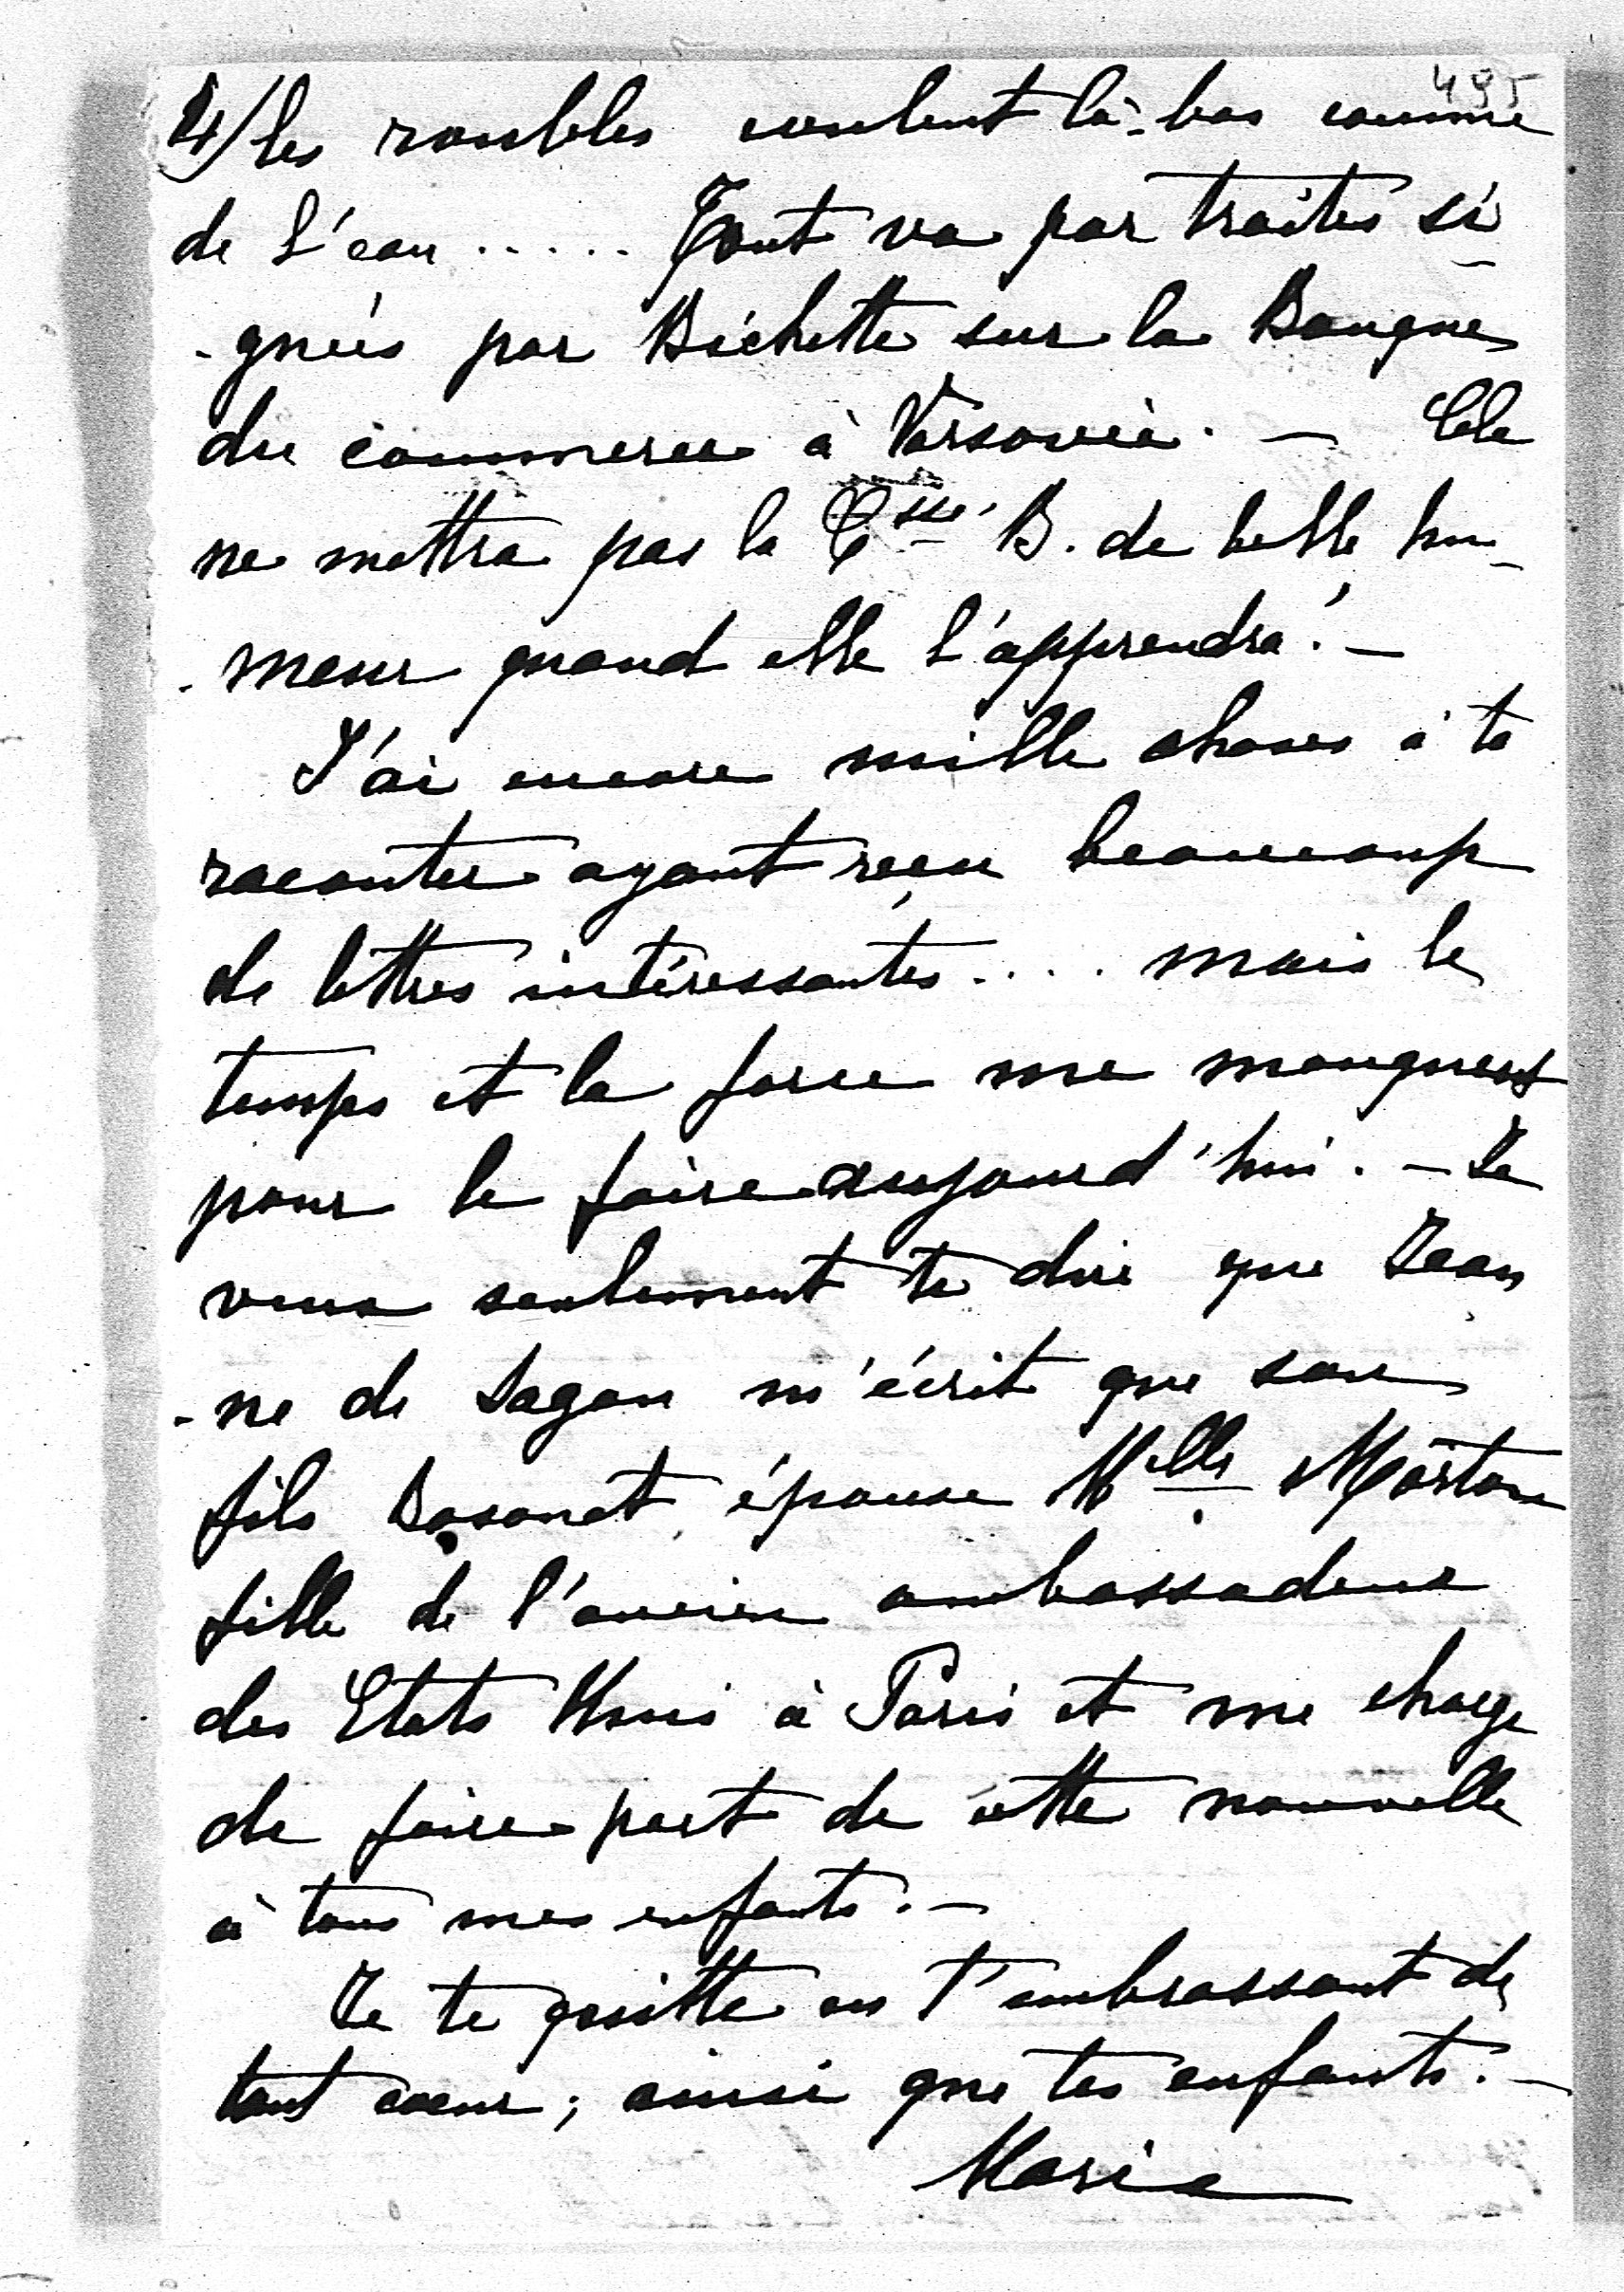 495
4/ les roubles coulent là-bas comme
de l'eau ..... Tout va par traites si
-gnées par Bichette sur la Banque
du commerce à Varsovie. — Cela
ne mettra pas la Csse B. de belle hu-
-meur quand elle l'apprendra! —
J'ai encore mille choses à te
raconter ayant reçu beaucoup
de lettres intéressantes .... mais le
temps et la force me manquent
pour le faire aujourd'hui. — Je
veux seulement te dire que Jean
-ne de Sagan m'écrit que son
fils Bosonet épouse Melle Morton
fille de l'ancien ambassadeur
des Etats Unis à Paris et me charge
de faire part de cette nouvelle
à tous mes enfants. —
Je te quitte en t'embrassant de
tout coeur; ainsi que tes enfants. —
Marie